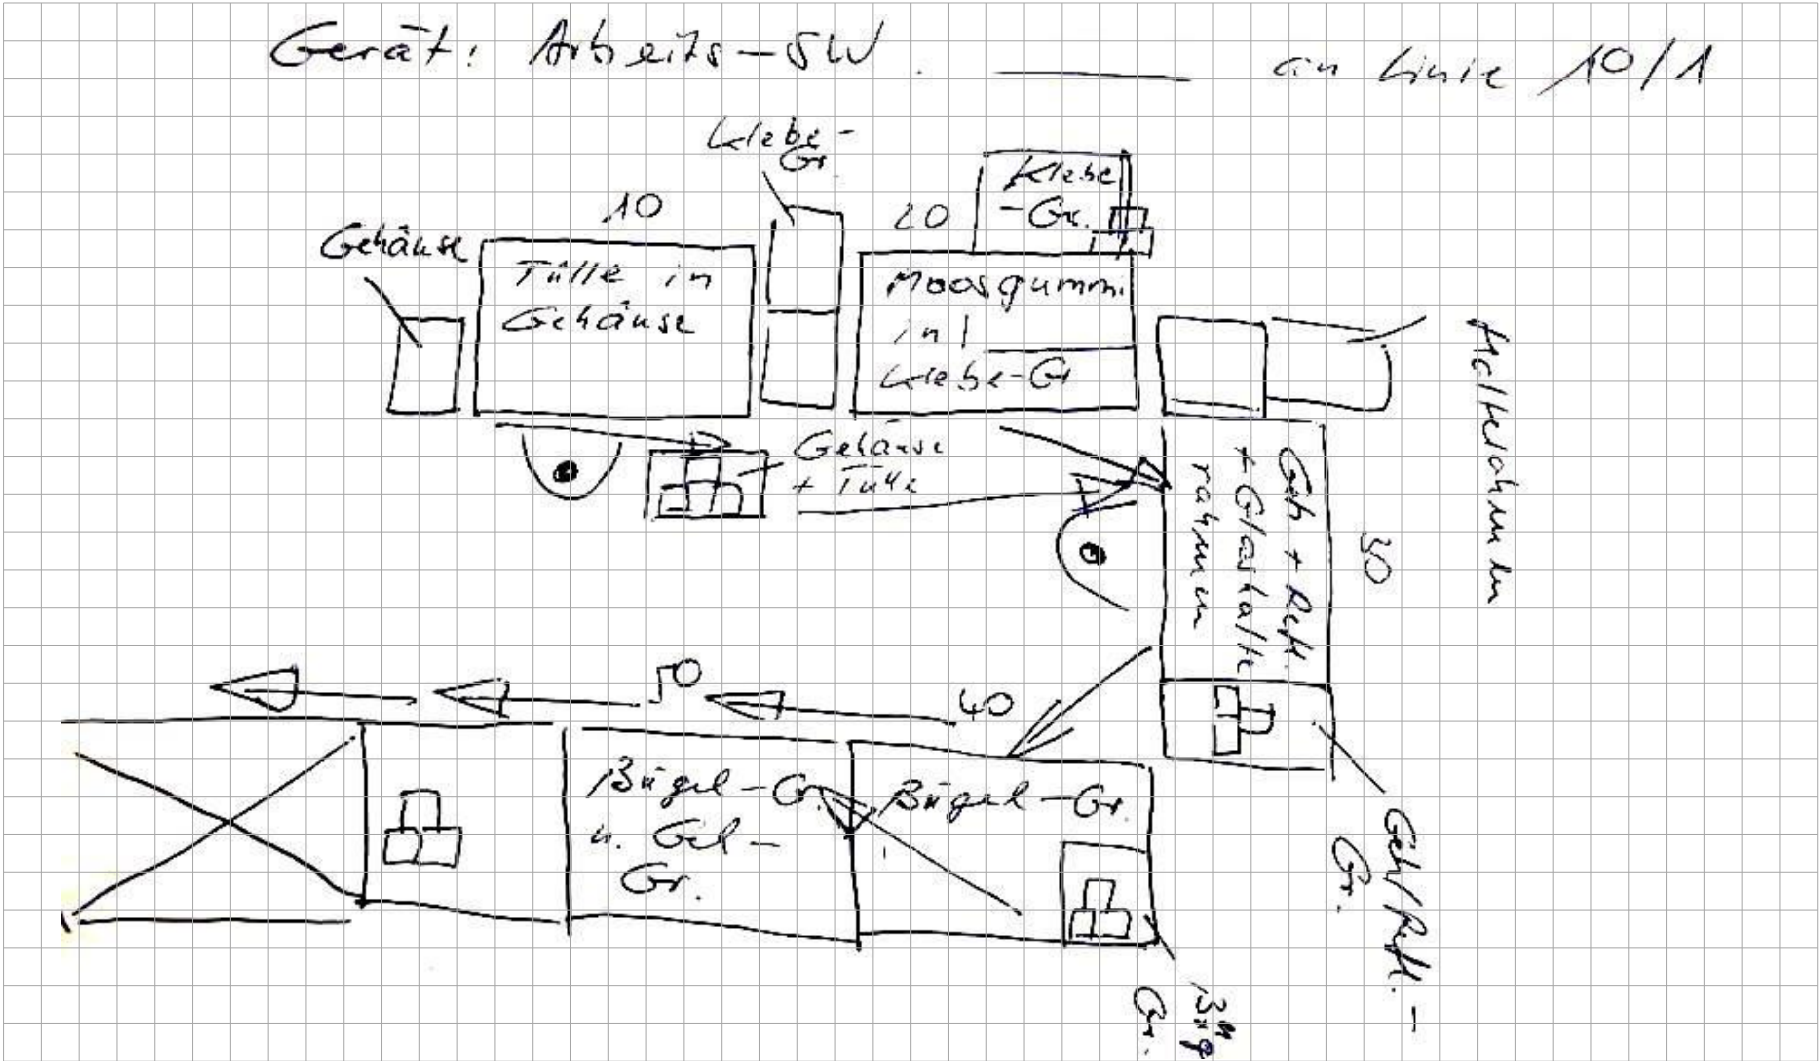 Gerät: Arbeits-SW. ____ an Linie 10/1
Klebe-
Gr.
Klebe
-Gr.
10
20
Gehäuse
Tülle in
Gehäuse
Moosgummi
in
Klebe-Gr
Halterahmen
Gehäuse
+ Tülle
Geh + Refl.
+ Glashalte
rahmen
30
50
40
Bügel-Gr.
u. Gel-
Gr.
Bügel-Gr.
Geh/Refl.-
Gr.
Büg
Gr.